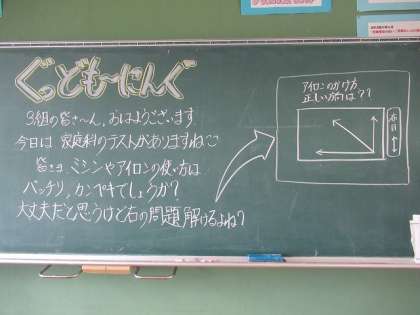 ぐっども〜にんぐ
3組の皆さ〜ん、おはようございます
今日は家庭科のテストがありますね
皆さま ミシンやアイロンの使い方は
バッチリ、カンペキでしょうか?
大丈夫だと思うけど右の問題解けるよね?
アイロンのかけ方
正しい方向は??
布目